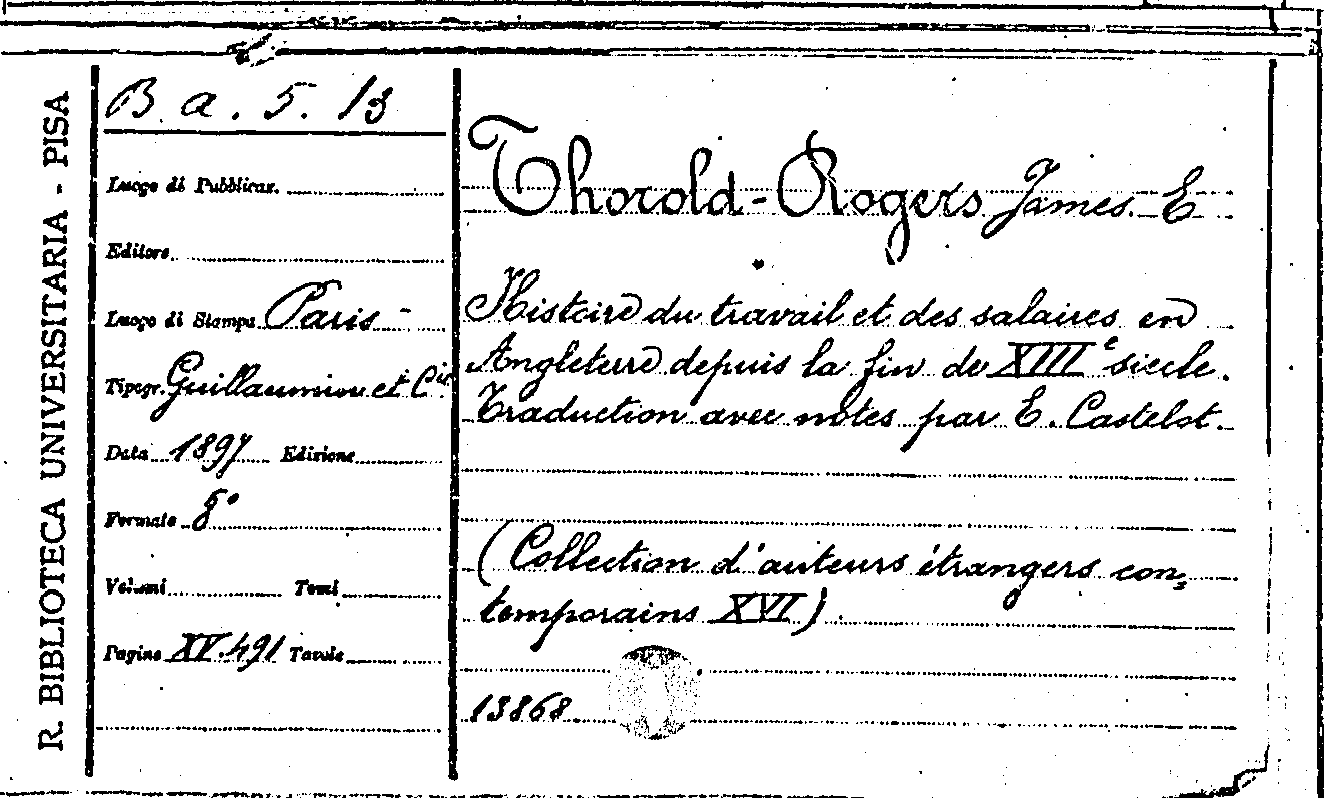 R. BIBLIOTECA UNIVERSITARIA - PISA
B a. 5. 13
Luogo di Pubblicaz.
Editore
Luogo di Stampa Paris -
Tipogr. Guillaumin et Cie.
Data 1897 Edizione
Formato 8°
Volumi Tomi
Pagine XV.491 Tavole
Thorold-Rogers James E
Histoire du travail et des salaires en
Angleterre depuis la fin de XIIIe siecle.
Traduction avec notes par E. Castelot.
(Collection d'auteurs étrangers con-
temporains XVI).
13868